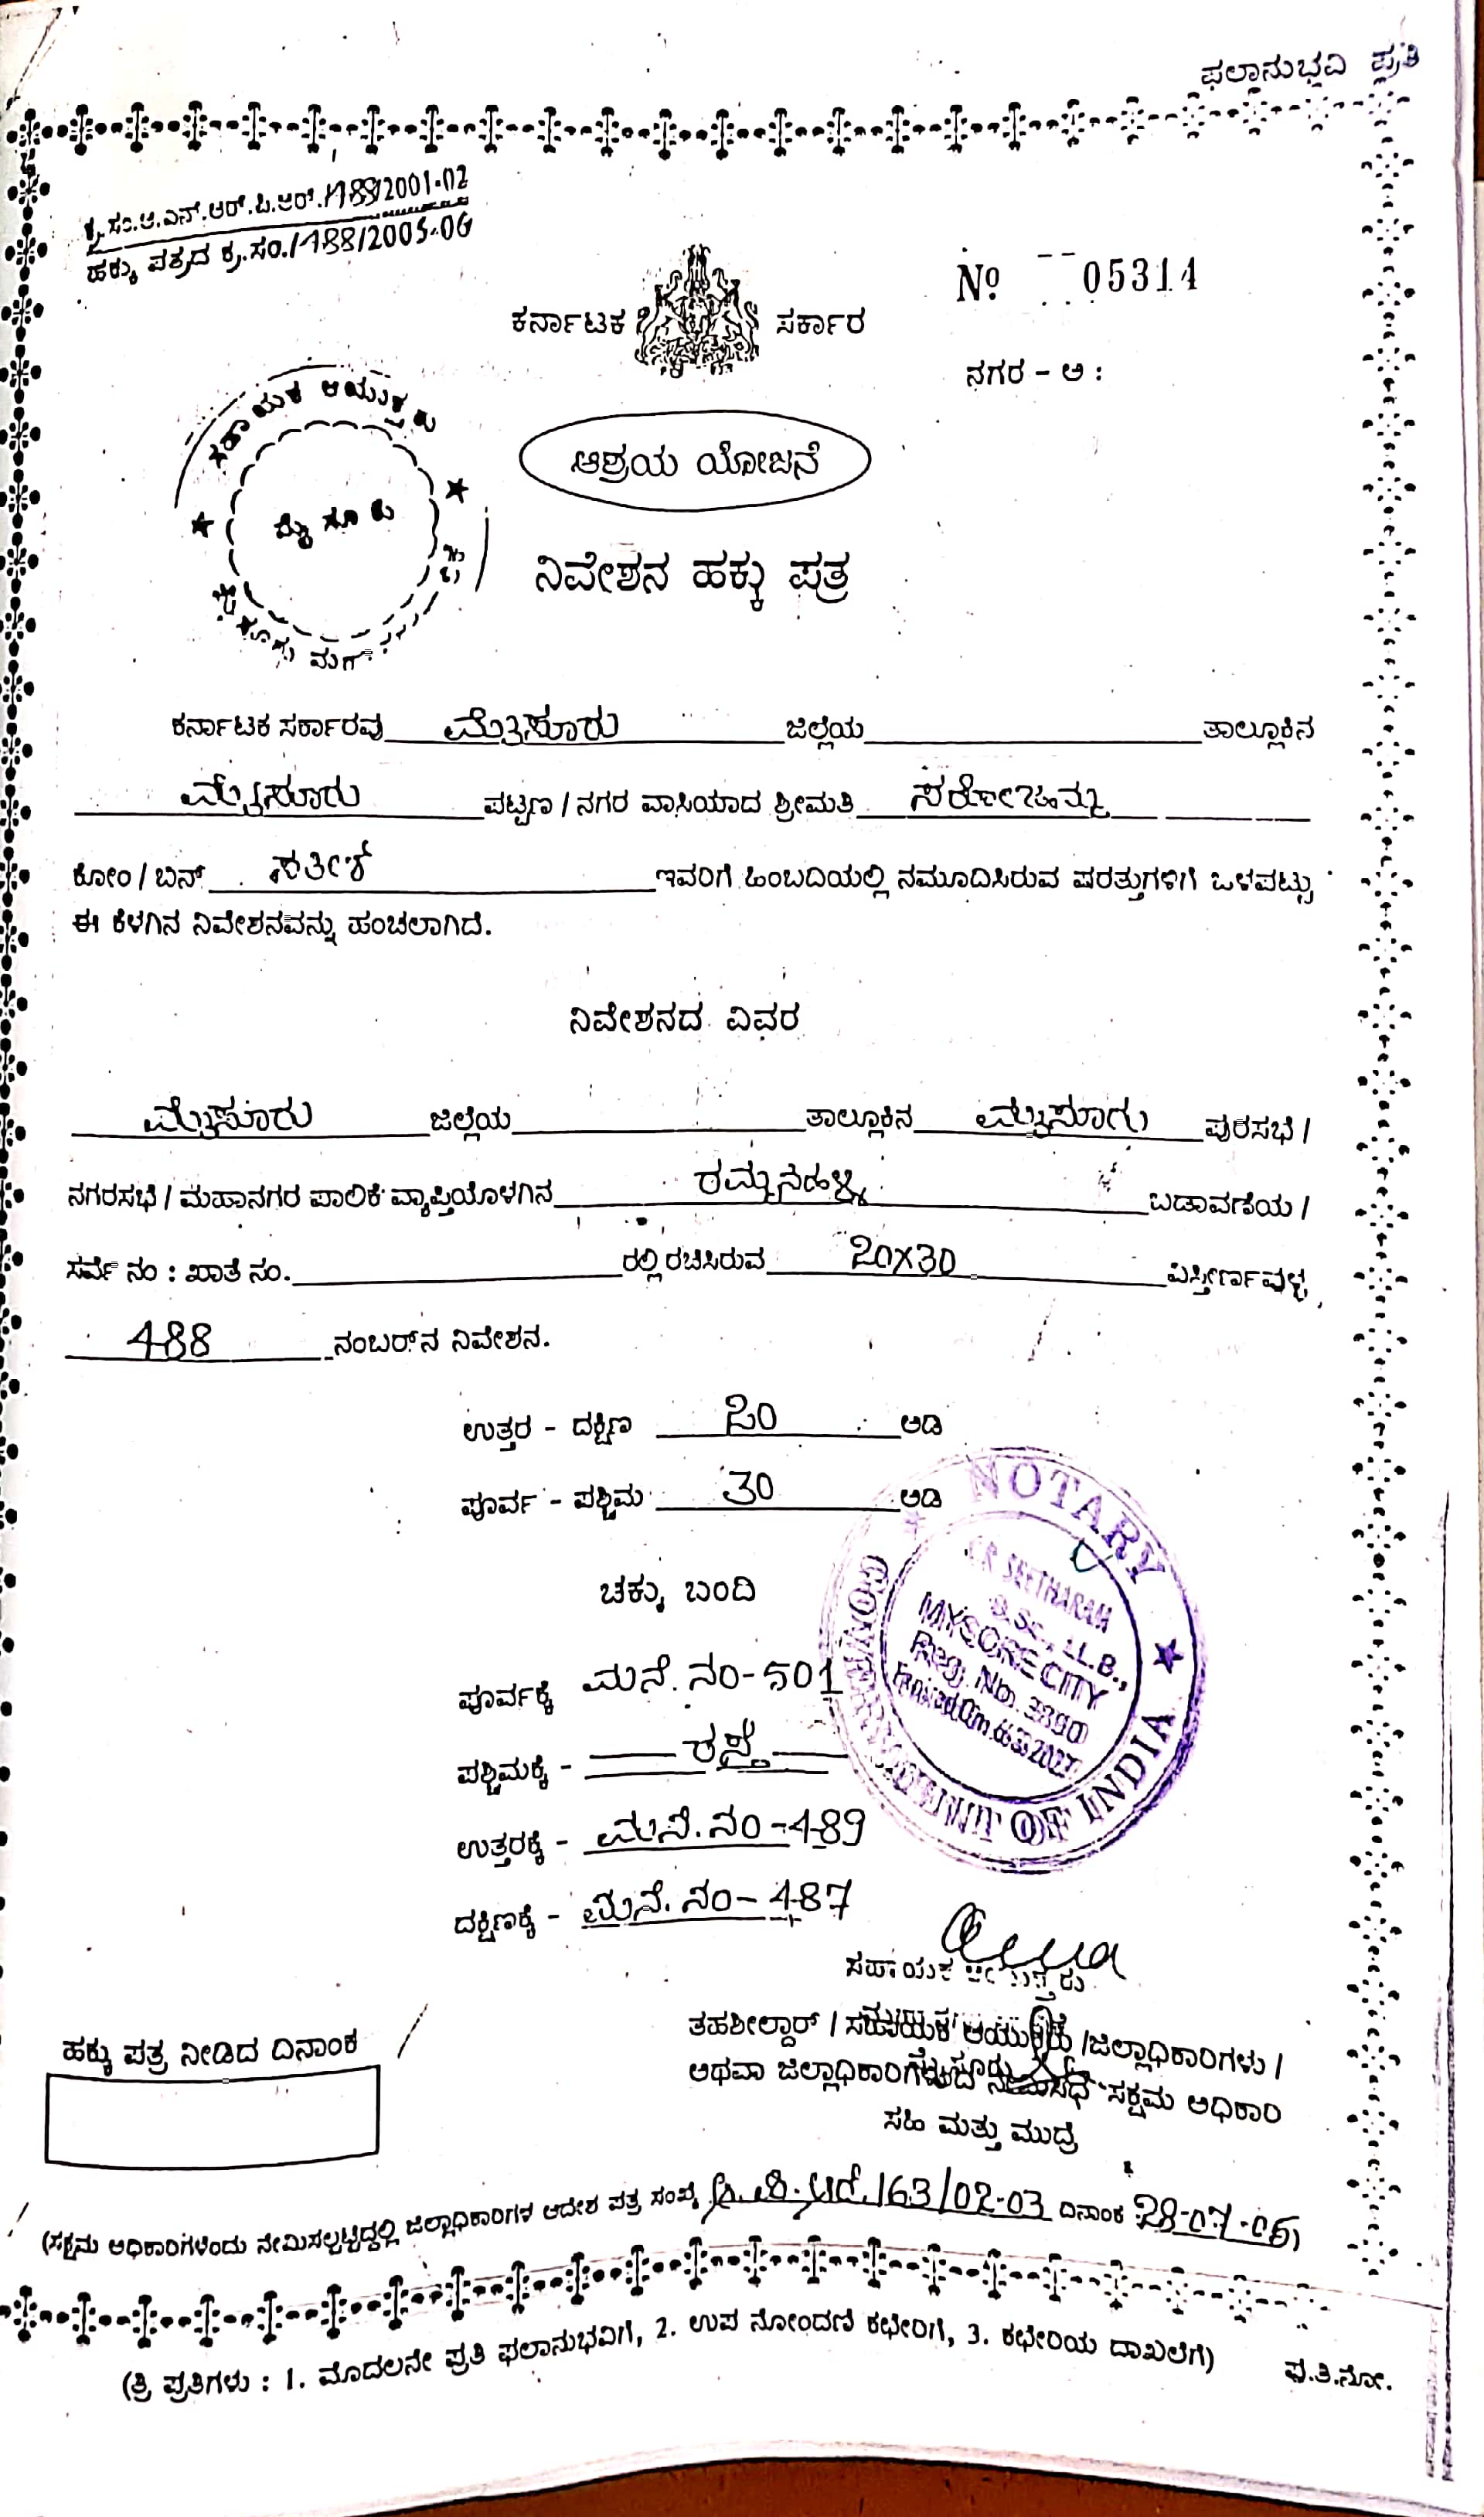 ಫಲಾನುಭವಿ ಪ್ರತಿ
ಕ್ರ.ಸಂ.ಆ.ಎನ್.ಆರ್.ಪಿ.ಆರ್. /2001-02
ಹಕ್ಕು ಪತ್ರದ ಕ್ರ.ಸಂ./488/2005-06
ಕರ್ನಾಟಕ ಸರ್ಕಾರ
Nº 05314
ನಗರ - ಅ :
ಸಹಾಯಕ ಆಯುಕ್ತರು
ಮೈಸೂರು
ಆಶ್ರಯ ಯೋಜನೆ
ನಿವೇಶನ ಹಕ್ಕು ಪತ್ರ
ಕರ್ನಾಟಕ ಸರ್ಕಾರವು ಮೈಸೂರು ಜಿಲ್ಲೆಯ ತಾಲ್ಲೂಕಿನ
ಮೈಸೂರು ಪಟ್ಟಣ / ನಗರ ವಾಸಿಯಾದ ಶ್ರೀಮತಿ ಸರೋಜಮ್ಮ
ಕೋಂ / ಬಿನ್ ಸತೀಶ್ ಇವರಿಗೆ ಹಿಂಬದಿಯಲ್ಲಿ ನಮೂದಿಸಿರುವ ಷರತ್ತುಗಳಿಗೆ ಒಳಪಟ್ಟು
ಈ ಕೆಳಗಿನ ನಿವೇಶನವನ್ನು ಹಂಚಲಾಗಿದೆ.
ನಿವೇಶನದ ವಿವರ
ಮೈಸೂರು ಜಿಲ್ಲೆಯ ತಾಲ್ಲೂಕಿನ ಮೈಸೂರು ಪುರಸಭೆ /
ನಗರಸಭೆ / ಮಹಾನಗರ ಪಾಲಿಕೆ ವ್ಯಾಪ್ತಿಯೊಳಗಿನ ರಮ್ಮನಹಳ್ಳಿ ಬಡಾವಣೆಯ /
ಸರ್ವೆ ನಂ : ಖಾತೆ ನಂ. ರಲ್ಲಿ ರಚಿಸಿರುವ 20X30 ವಿಸ್ತೀರ್ಣವುಳ್ಳ
488 ನಂಬರ್‌ನ ನಿವೇಶನ.
ಉತ್ತರ - ದಕ್ಷಿಣ 20 ಅಡಿ
ಪೂರ್ವ - ಪಶ್ಚಿಮ 30 ಅಡಿ
ಚಕ್ಕು ಬಂದಿ
ಪೂರ್ವಕ್ಕೆ ಮನೆ.ನಂ-501
ಪಶ್ಚಿಮಕ್ಕೆ - ರಸ್ತೆ
ಉತ್ತರಕ್ಕೆ - ಮನೆ.ನಂ-489
ದಕ್ಷಿಣಕ್ಕೆ - ಮನೆ.ನಂ-487
NOTARY
GOVERNMENT OF INDIA
SEETHARAM
MYSORE CITY
Reg. No. 3890
ಸಹಾಯಕ ಆಯುಕ್ತರು
ತಹಶೀಲ್ದಾರ್ / ಸಹಾಯಕ ಆಯುಕ್ತರು /ಜಿಲ್ಲಾಧಿಕಾರಿಗಳು /
ಅಥವಾ ಜಿಲ್ಲಾಧಿಕಾರಿಗಳಿಂದ ನೇಮಿಸಿದ ಸಕ್ಷಮ ಅಧಿಕಾರಿ
ಸಹಿ ಮತ್ತು ಮುದ್ರೆ
ಹಕ್ಕು ಪತ್ರ ನೀಡಿದ ದಿನಾಂಕ
(ಸಕ್ಷಮ ಅಧಿಕಾರಿಗಳೆಂದು ನೇಮಿಸಲ್ಪಟ್ಟಿದ್ದಲ್ಲಿ ಜಿಲ್ಲಾಧಿಕಾರಿಗಳ ಆದೇಶ ಪತ್ರ ಸಂಖ್ಯೆ 163/02-03 ದಿನಾಂಕ 28-07-05)
(ತ್ರಿ ಪ್ರತಿಗಳು : 1. ಮೊದಲನೇ ಪ್ರತಿ ಫಲಾನುಭವಿಗೆ, 2. ಉಪ ನೋಂದಣಿ ಕಛೇರಿಗೆ, 3. ಕಛೇರಿಯ ದಾಖಲೆಗೆ)
ಪು.ತಿ.ನೋ.